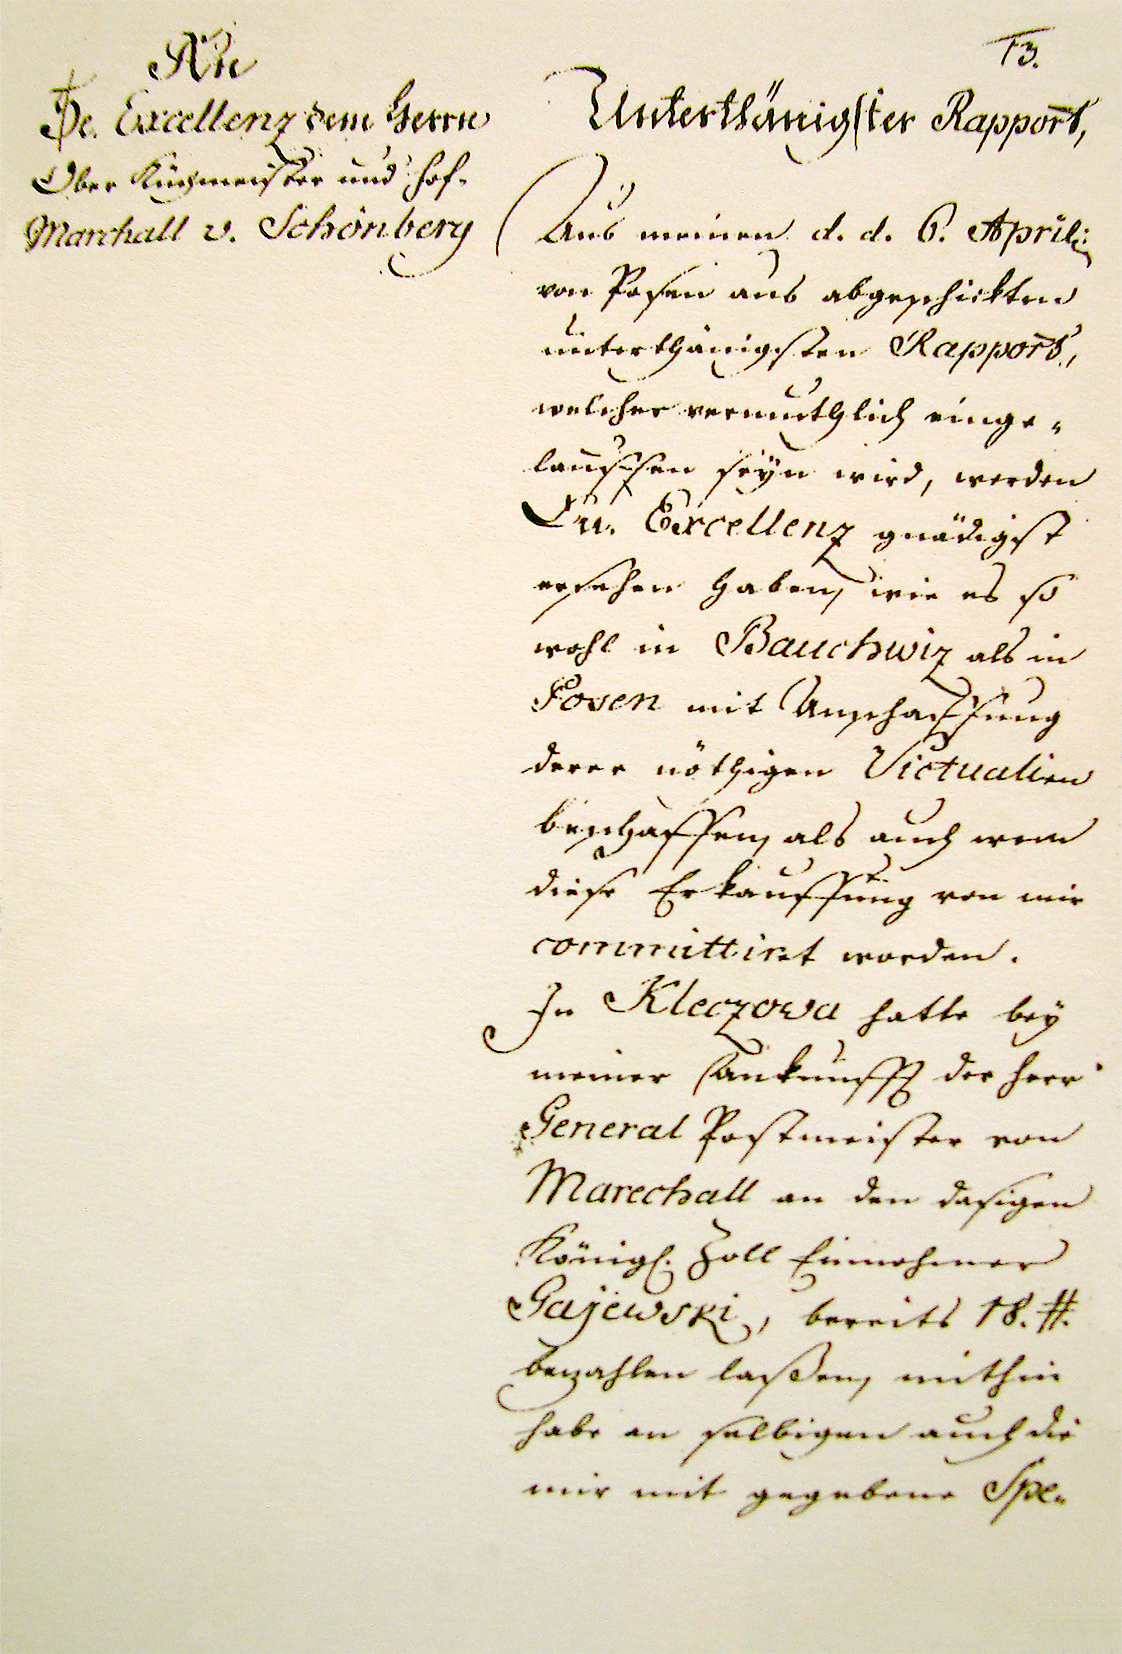 An
Se. Excellenz dem Herrn
Ober Küchmeister und Hof-
Marchall v. Schönberg
13.
Unterthänigster Rapport,
Aus meinen d. d. 6. April:
von Posen aus abgeschickten
unterthänigsten Rapport,
welcher vermuthlich einge-
lauffen seÿn wird, werden
Eu. Excellenz gnädigst
ersehen haben, wie es so
wohl in Bauchwiz als in
Posen mit Anschaffung
derer nöthigen Victualien
beschaffen, als auch wem
diese Erkauffung von mir
committiret worden.
In Kleczowa hatte beÿ
meiner Ankunfft der Herr
General Postmeister von
Marechall an den dasigen
Königl. Zoll Einnehmer
Gajewski, bereits 18. #.
bezahlen laßen, mithin
habe an selbigen auch die
mir mit gegebene Spe-